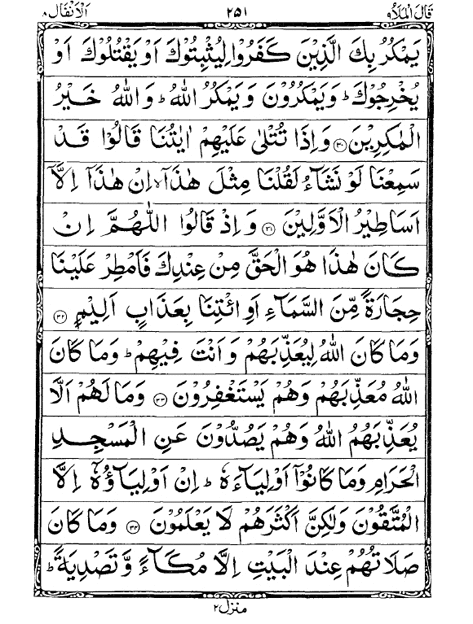 قَالَ الْمَلَاُ ٩ ٢٥١ اَلْاَنْفَال ٨
يَمْكُرُ بِكَ الَّذِيْنَ كَفَرُوْا لِيُثْبِتُوْكَ اَوْ يَقْتُلُوْكَ اَوْ
يُخْرِجُوْكَ ؕ وَيَمْكُرُوْنَ وَيَمْكُرُ اللّٰهُ ؕ وَاللّٰهُ خَيْرُ
الْمٰكِرِيْنَ ﴿٣٠﴾ وَاِذَا تُتْلٰى عَلَيْهِمْ اٰيٰتُنَا قَالُوْا قَدْ
سَمِعْنَا لَوْ نَشَآءُ لَقُلْنَا مِثْلَ هٰذَاۤ ۙ اِنْ هٰذَاۤ اِلَّاۤ
اَسَاطِيْرُ الْاَوَّلِيْنَ ﴿٣١﴾ وَاِذْ قَالُوا اللّٰهُمَّ اِنْ
كَانَ هٰذَا هُوَ الْحَقَّ مِنْ عِنْدِكَ فَاَمْطِرْ عَلَيْنَا
حِجَارَةً مِّنَ السَّمَآءِ اَوِ ائْتِنَا بِعَذَابٍ اَلِيْمٍ ﴿٣٢﴾
وَمَا كَانَ اللّٰهُ لِيُعَذِّبَهُمْ وَاَنْتَ فِيْهِمْ ؕ وَمَا كَانَ
اللّٰهُ مُعَذِّبَهُمْ وَهُمْ يَسْتَغْفِرُوْنَ ﴿٣٣﴾ وَمَا لَهُمْ اَلَّا
يُعَذِّبَهُمُ اللّٰهُ وَهُمْ يَصُدُّوْنَ عَنِ الْمَسْجِدِ
الْحَرَامِ وَمَا كَانُوْۤا اَوْلِيَآءَهٗ ؕ اِنْ اَوْلِيَآؤُهٗۤ اِلَّا
الْمُتَّقُوْنَ وَلٰكِنَّ اَكْثَرَهُمْ لَا يَعْلَمُوْنَ ﴿٣٤﴾ وَمَا كَانَ
صَلَاتُهُمْ عِنْدَ الْبَيْتِ اِلَّا مُكَآءً وَّتَصْدِيَةً ؕ
منزل ٢